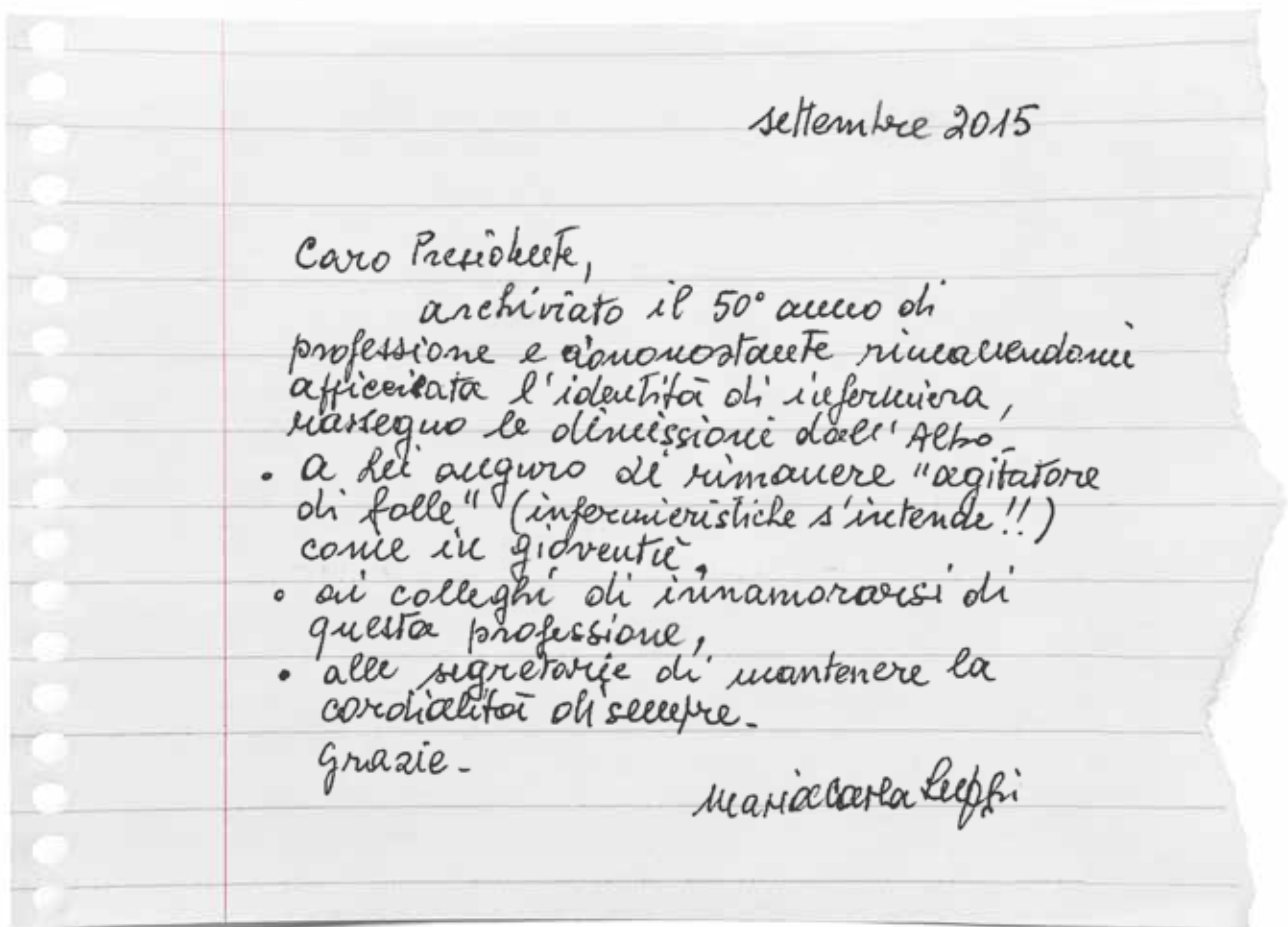 settembre 2015
Caro Presidente,
archiviato il 50° anno di
professione e ciononostante rimanendomi
appiccicata l'identità di infermiera,
rassegno le dimissioni dall'Albo.
• a Lei auguro di rimanere "agitatore
di folle" (infermieristiche s'intende!!)
come in gioventù,
• ai colleghi di innamorarsi di
questa professione,
• alle segretarie di mantenere la
cordialità di sempre.
Grazie.
Mariacarla